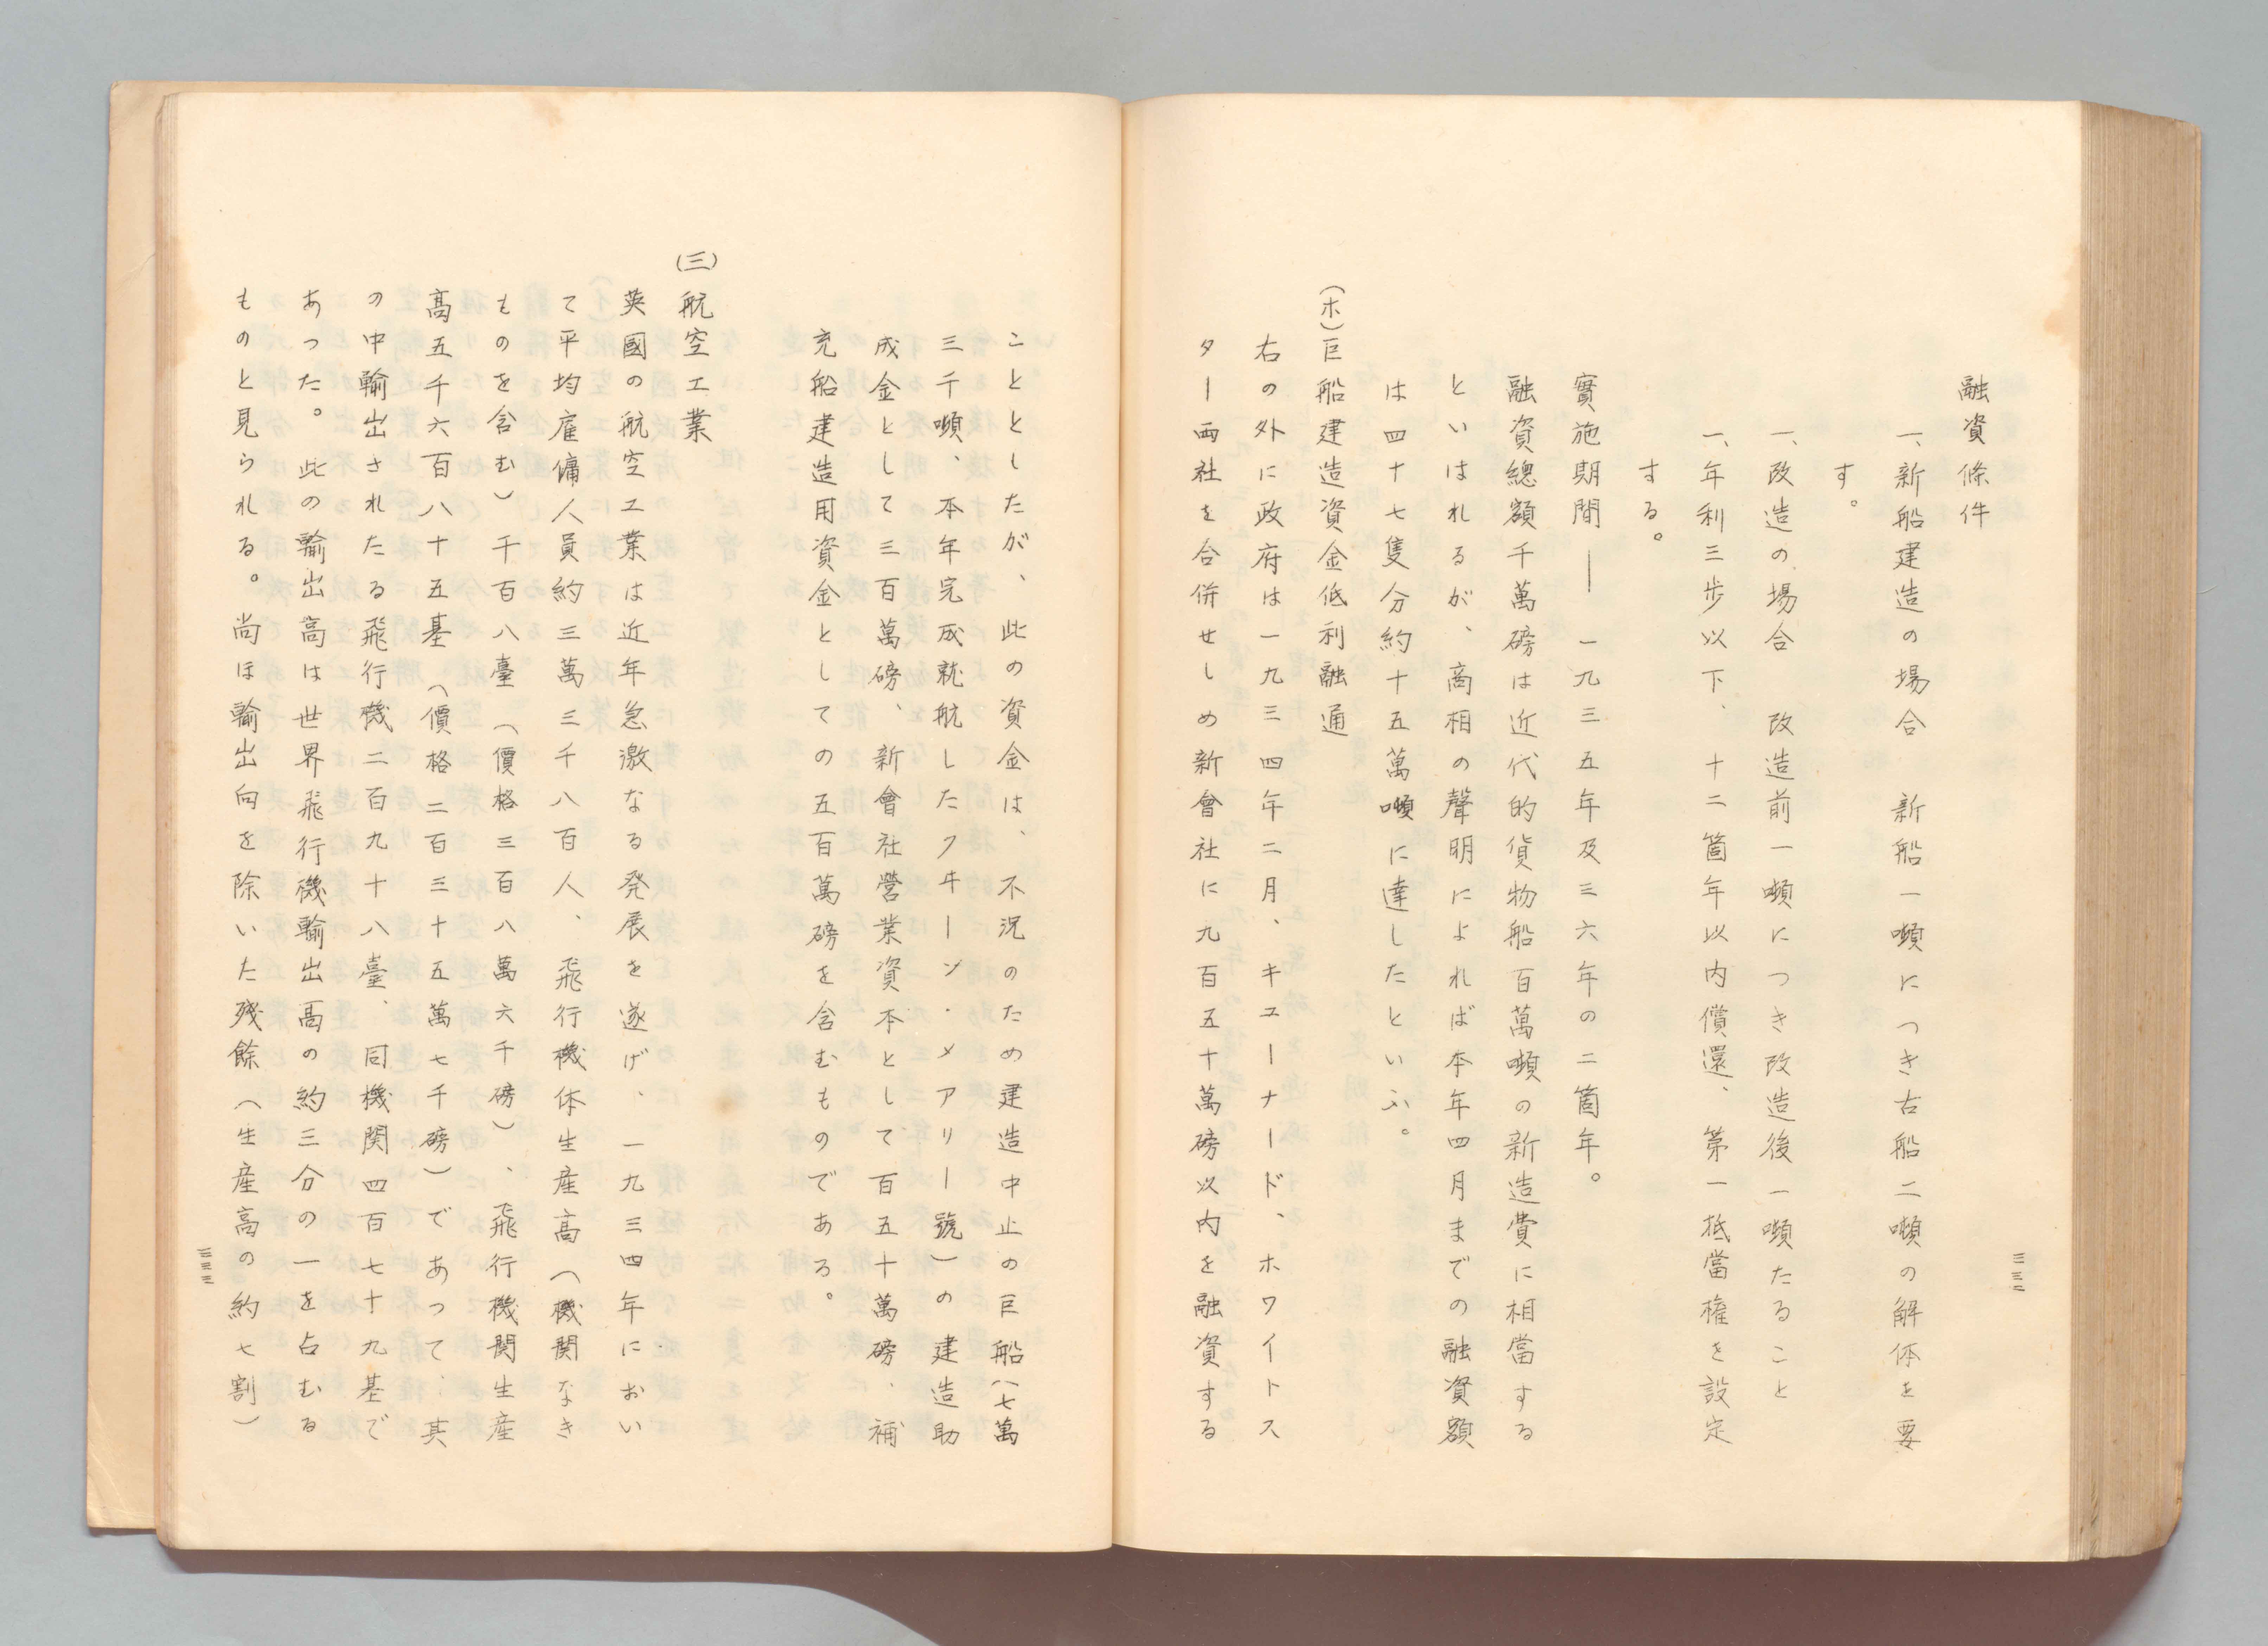 融資條件
一、新船建造の場合　新船一噸につき古船二噸の解体を要
す。
一、改造の場合　改造前一噸につき改造後一噸たること
一、年利三歩以下、十二箇年以内償還、第一抵當権を設定
する。
實施期間――一九三五年及三六年の二箇年。
融資總額千萬磅は近代的貨物船百萬噸の新造費に相當する
といはれるが、商相の聲明によれば本年四月までの融資額
は四十七隻分約十五萬噸に達したといふ。
(ホ)巨船建造資金低利融通
右の外に政府は一九三四年二月、キユーナード、ホワイトス
ター両社を合併せしめ新會社に九百五十萬磅以内を融資する
こととしたが、此の資金は、不況のため建造中止の巨船(七萬
三千噸、本年完成就航したクヰーン・メアリー號)の建造助
成金として三百萬磅、新會社營業資本として百五十萬磅、補
充船建造用資金としての五百萬磅を含むものである。
(三)航空工業
英國の航空工業は近年急激なる発展を遂げ、一九三四年におい
て平均雇傭人員約三萬三千八百人、飛行機体生産高(機関なき
ものを含む)千百八臺(價格三百八萬六千磅)、飛行機関生産
高五千六百八十五基(價格二百三十五萬七千磅)であつて、其
の中輸出されたる飛行機二百九十八臺、同機関四百七十九基で
あつた。此の輸出高は世界飛行機輸出高の約三分の一を占むる
ものと見られる。尚ほ輸出向を除いた殘餘(生産高の約七割)